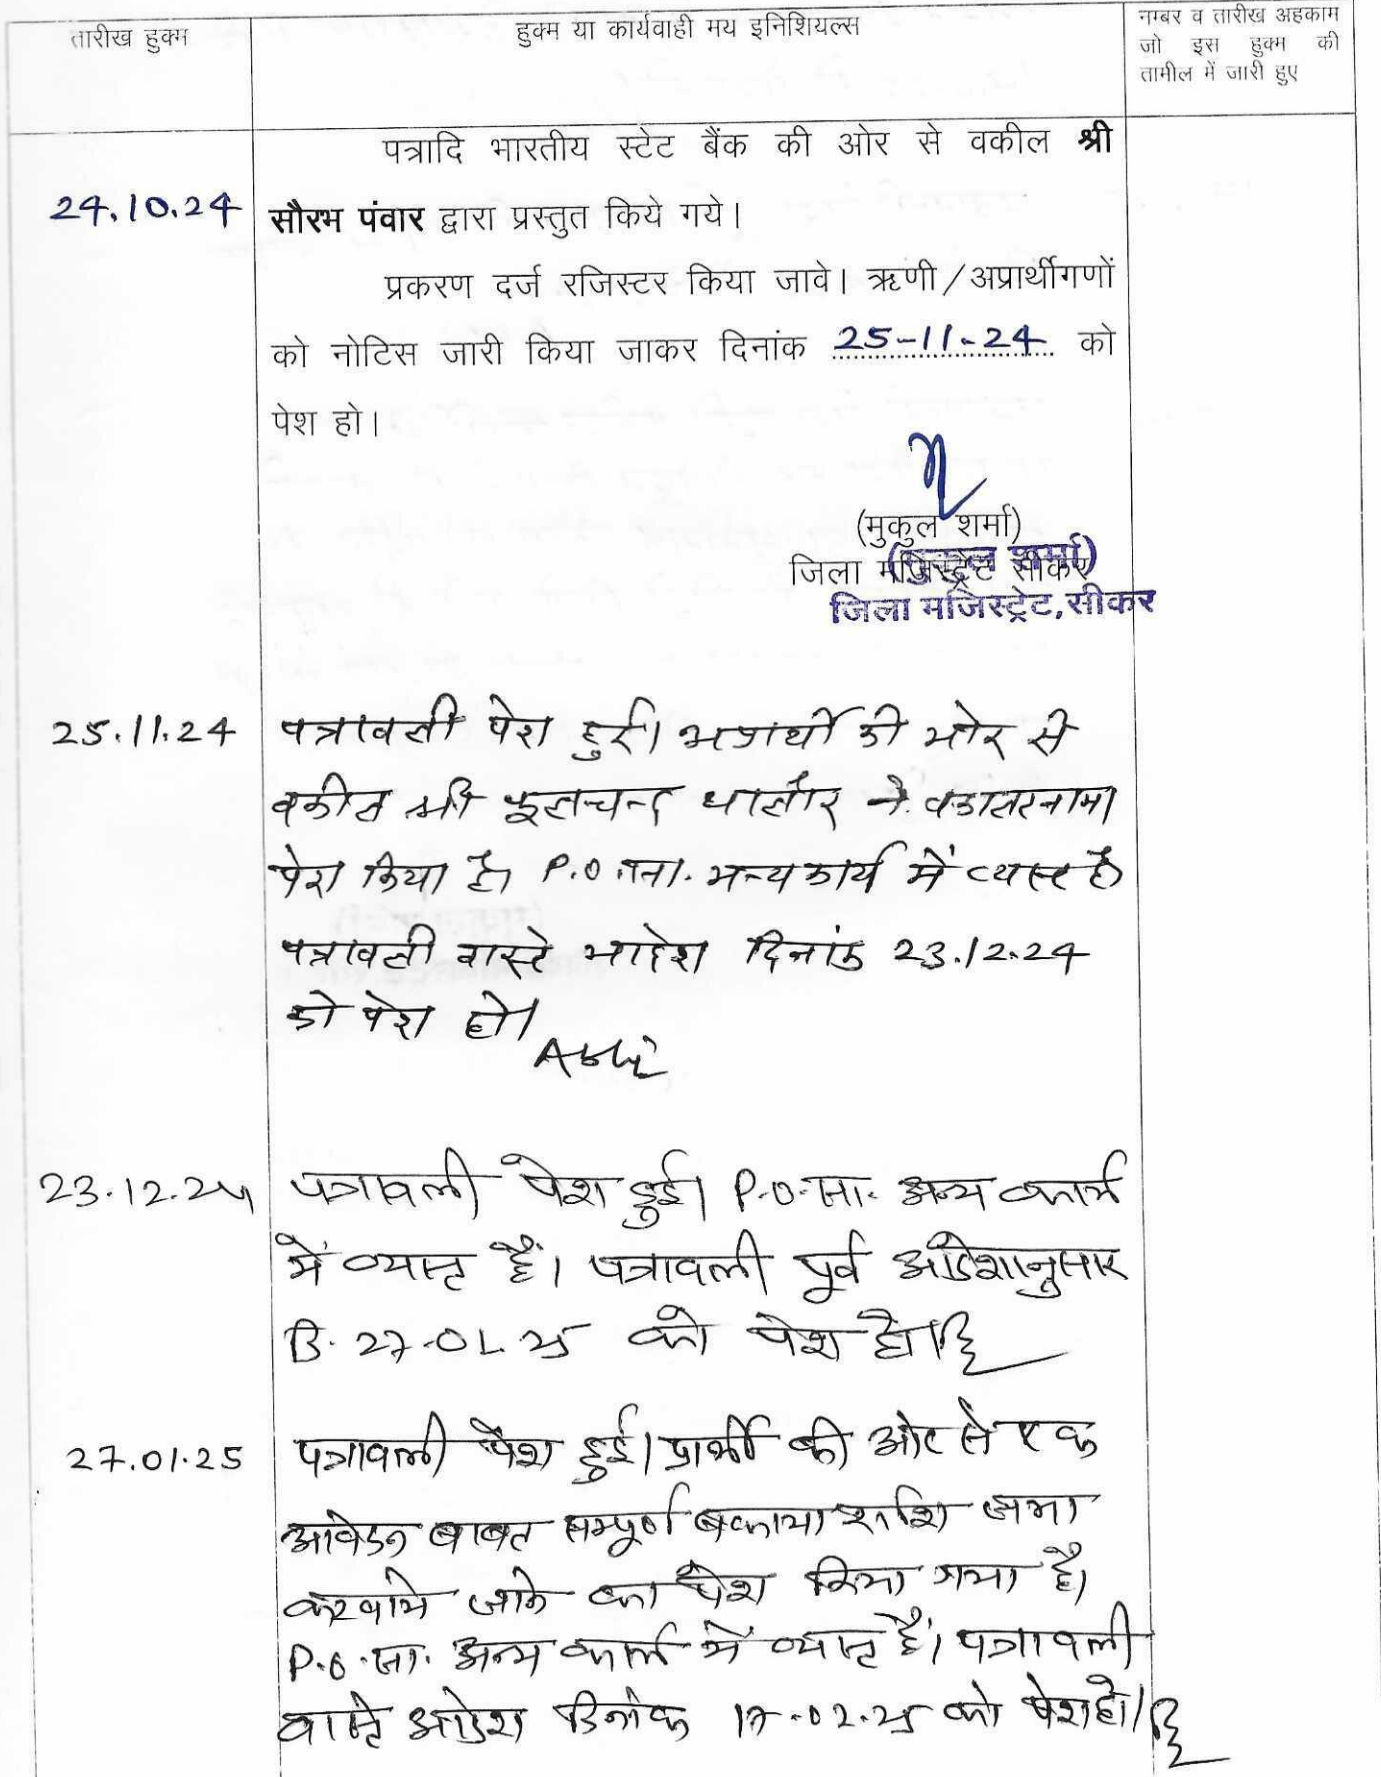 तारीख हुक्म
हुक्म या कार्यवाही मय इनिशियल्स
नम्बर व तारीख अहकाम
जो इस हुक्म की
तामील में जारी हुए
पत्रादि भारतीय स्टेट बैंक की ओर से वकील श्री
24.10.24
सौरभ पंवार द्वारा प्रस्तुत किये गये।
प्रकरण दर्ज रजिस्टर किया जावे। ऋणी/अप्रार्थीगणों
को नोटिस जारी किया जाकर दिनांक 25-11-24 को
पेश हो।
(मुकुल शर्मा)
जिला मजिस्ट्रेट सीकर
(मुकुल शर्मा)
जिला मजिस्ट्रेट, सीकर
25.11.24
पत्रावली पेश हुई। अप्रार्थी की ओर से
वकील श्री फूलचन्द ने वकालतनामा
पेश किया है। P.O. सा. अन्य कार्य में व्यस्त है
पत्रावली वास्ते आदेश दिनांक 23.12.24
को पेश हो।
23.12.24
पत्रावली पेश हुई। P.O. सा. अन्य कार्य
में व्यस्त हैं। पत्रावली पूर्व आदेशानुसार
दि. 27-01-25 को पेश हो।
27.01.25
पत्रावली पेश हुई। प्रार्थी की ओर से एक
आवेदन बाबत सम्पूर्ण बकाया राशि जमा
करवाये जाने का पेश किया गया है।
P.O. सा. अन्य कार्य में व्यस्त हैं। पत्रावली
वास्ते आदेश दिनांक 17-02-25 को पेश हो।